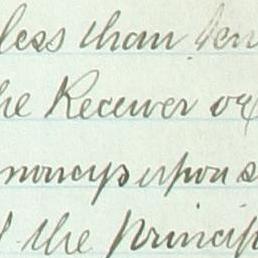 less than ten
he Receiver or
moneys upon s
the princip